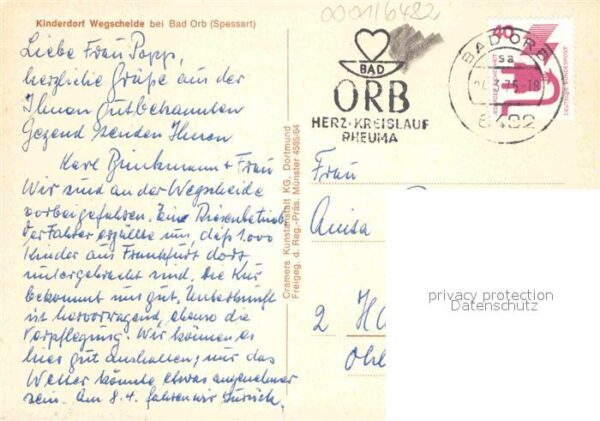 Kinderdorf Wegscheide bei Bad Orb (Spessart)
Liebe Frau Popp,
herzliche Grüße aus der
Ihnen gutbekannten
Gegend senden Ihnen
Karl Brinkmann + Frau
Wir sind an der Wegscheide
vorbeigefahren. Eine Riesenbetrieb
der Fahrer erzählte uns, daß 1.000
Kinder aus Frankfurt dort
untergebracht sind. Die Kur
bekommt uns gut. Unterkunft
ist hervorragend, ebenso die
Verpflegung. Wir können es
hier gut aushalten; nur das
Wetter könnte etwas angenehmer
sein. Am 8.4. fahren wir zurück.
Cramers Kunstanstalt KG, Dortmund
Freigeg. d. Reg.-Präs. Münster 4585/64
0001/6482
BAD
ORB
HERZ·KREISLAUF
RHEUMA
BAD ORB
sa
6482
40
DEUTSCHE BUNDESPOST
Frau
2 H
privacy protection
Datenschutz